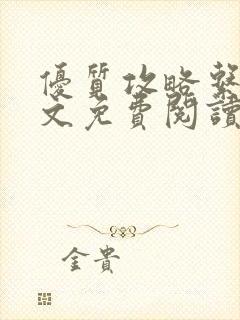 優質攻略系
文免費閱讀
金貴